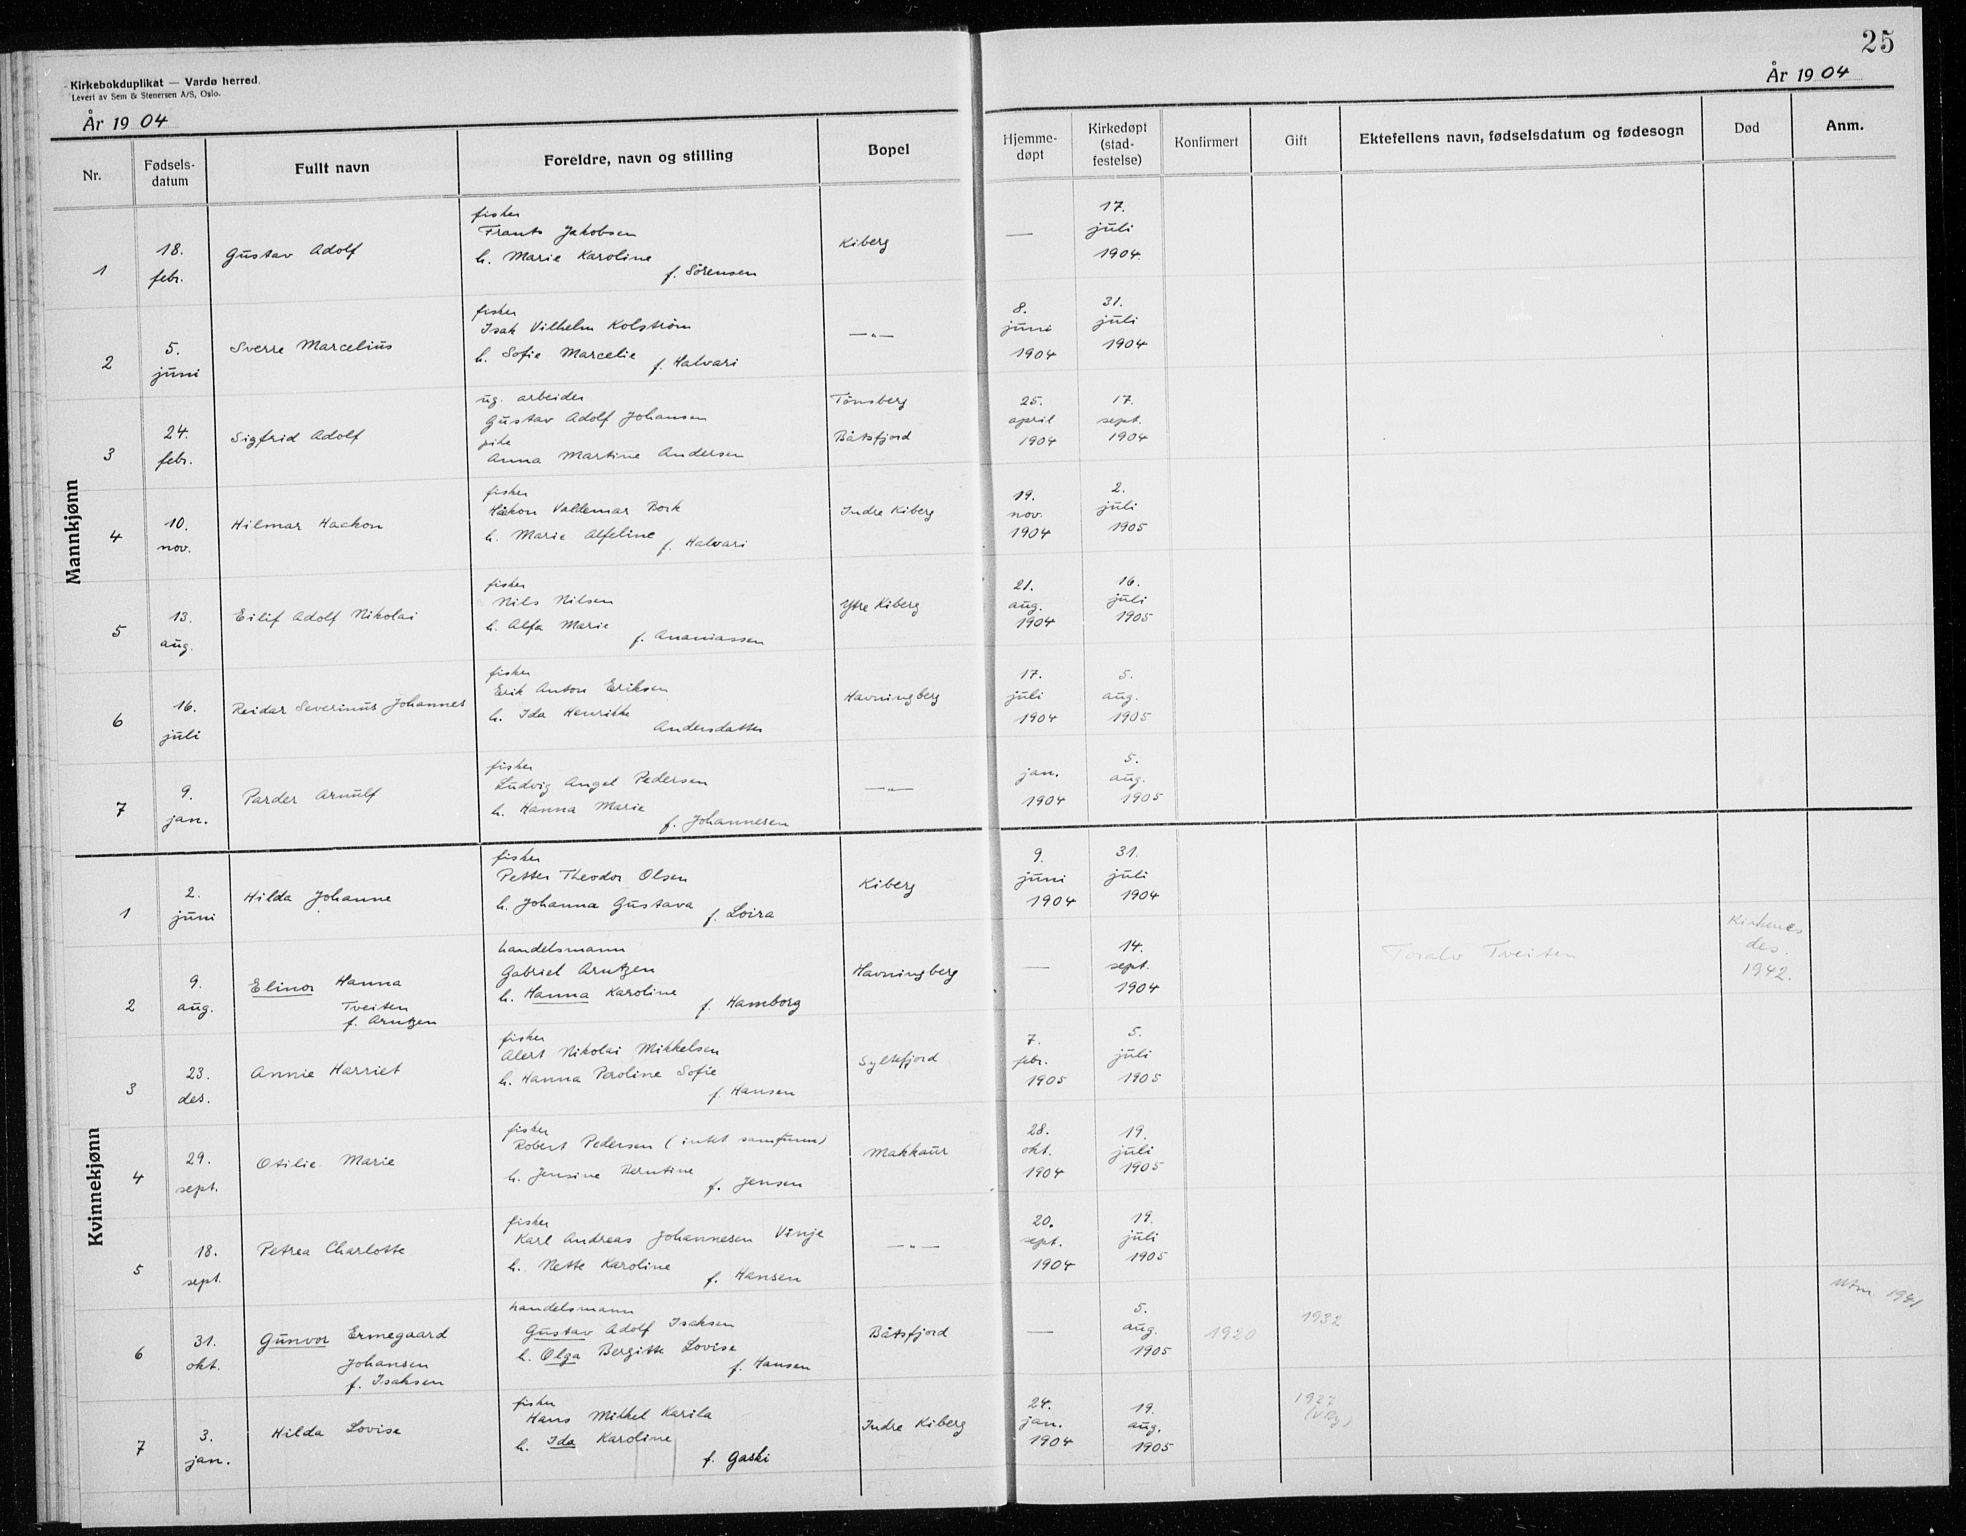 25
Kirkebokduplikat — Vardø herred.
Levert av Sem & Stenersen A/S, Oslo.
År 1904
År 1904
Nr.
Fødsels-
datum
Fullt navn
Foreldre, navn og stilling
Bopel
Hjemme-
døpt
Kirkedøpt
(stad-
festelse)
Konfirmert
Gift
Ektefellens navn, fødselsdatum og fødesogn
Død
Anm.
Mannkjønn
1
18.
febr.
Gustav Adolf
fisker
Frants Jakobsen
h. Marie Karoline
f. Sörensen
Kiberg
—
17.
juli
1904.
2
5.
juni
Sverre Marcelius
fisker
Isak Vilhelm Kolström
h. Sofie Marcelie
f. Halvari
—„—
8.
juni
1904
31.
juli
1904
3
24.
febr.
Sigfrid Adolf
ug. arbeider
Gustav Adolf Johansen
pike
Anna Martine Andersen
Tönsberg
Båtsfjord
25.
april
1904
17.
sept.
1904
4
10.
nov.
Hilmar Hackon
fisker
Håkon Valdemar Bork
h. Marie Alfeline
f. Halvari
Indre Kiberg
19.
nov.
1904
2.
juli
1905
5
13.
aug.
Eilif Adolf Nikolai
fisker
Nils Nilsen
h. Alfa Marie
f. Ananiassen
Ytre Kiberg
21.
aug.
1904
16.
juli
1905
6
16.
juli
Reidar Severinus Johannes
fisker
Erik Anton Eriksen
h. Ida Henrikke
Andersdatter
Havningberg
17.
juli
1904
5.
aug.
1905
7
9.
jan.
Parder Arnulf
fisker
Ludvig Angel Pedersen
h. Hanna Marie
f. Johannesen
—„—
jan.
1904
5.
aug.
1905
Kvinnekjønn
1
2.
juni
Hilda Johanne
fisker
Petter Theodor Olsen
h. Johanna Gustava
f. Loira
Kiberg
9.
juni
1904
31.
juli
1904
2
9.
aug.
Elinor Hanna
Tveiten
f. Arntzen
handelsmann
Gabriel Arntzen
h. Hanna Karoline
f. Hamborg
Havningberg
—
14.
sept.
1904
Toralv Tveiten
Kirkenes
des.
1942.
3
23.
des.
Annie Harriet
fisker
Alert Nikolai Mikkelsen
h. Hanna Peroline Sofie
f. Hansen
Syltefjord
7.
febr.
1905
5.
juli
1905
4
29.
sept.
Otilie Marie
fisker
Robert Pedersen (intet samfunn)
h. Jensine Berntine
f. Jensen
Makkaur
28.
okt.
1904
19.
juli
1905
5
18.
sept.
Petrea Charlotte
fisker
Karl Andreas Johannesen Vinje
h. Nette Karoline
f. Hansen
—„—
20.
sept.
1904
19.
juli
1905
6
31.
okt.
Gunvor Ermegaard
Johansen
f. Isaksen
handelsmann
Gustav Adolf Isaksen
h. Olga Bergitte Lovise
f. Hansen
Båtsfjord
—
5.
aug.
1905
1920
1932
1941
7
3.
jan.
Hilda Lovise
fisker
Hans Mikkel Karila
h. Ida Karoline
f. Gaski
Indre Kiberg
24.
jan.
1904
19.
aug.
1905
1927